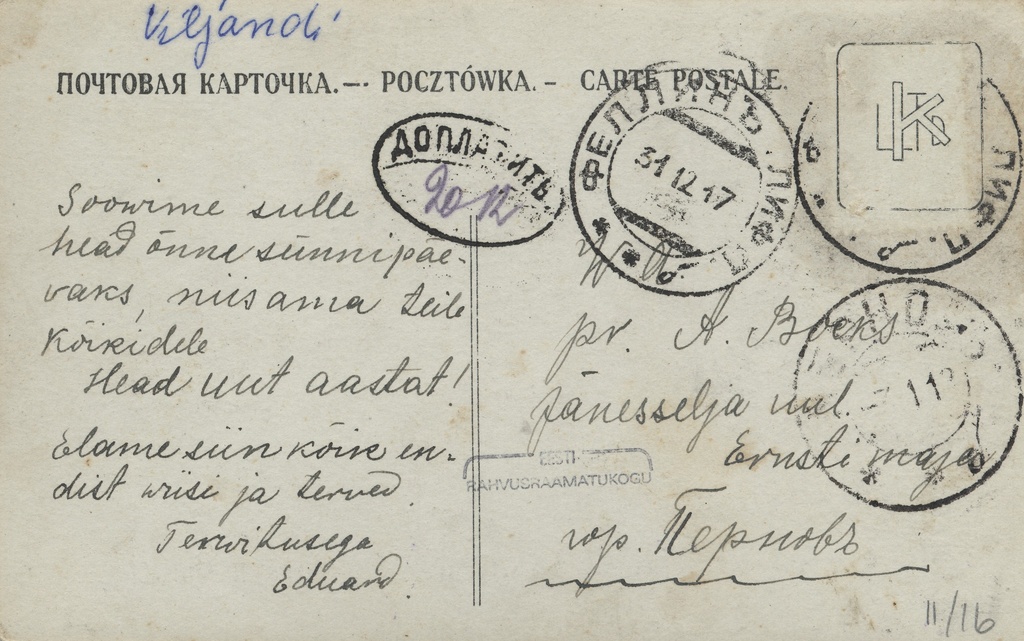 Viljandi
ПОЧТОВАЯ КАРТОЧКА.— POCZTÓWKA. – CARTE POSTALE.
ДОПЛАТИТЬ
20 к
ФЕЛЛИНЪ ЛИФ
31 12 17
ЛИФ
Soowime sulle
head õnne sünnipäe-
vaks, niisama teile
kõikidele
Head uut aastat!
Elame siin kõik en-
dist wiisi ja terved.
Terwitusega
Eduard.
pr. A. Bocks
Jänesselja uul.
Ernsti maja
гор. Перновъ
EESTI
RAHVUSRAAMATUKOGU
11/16